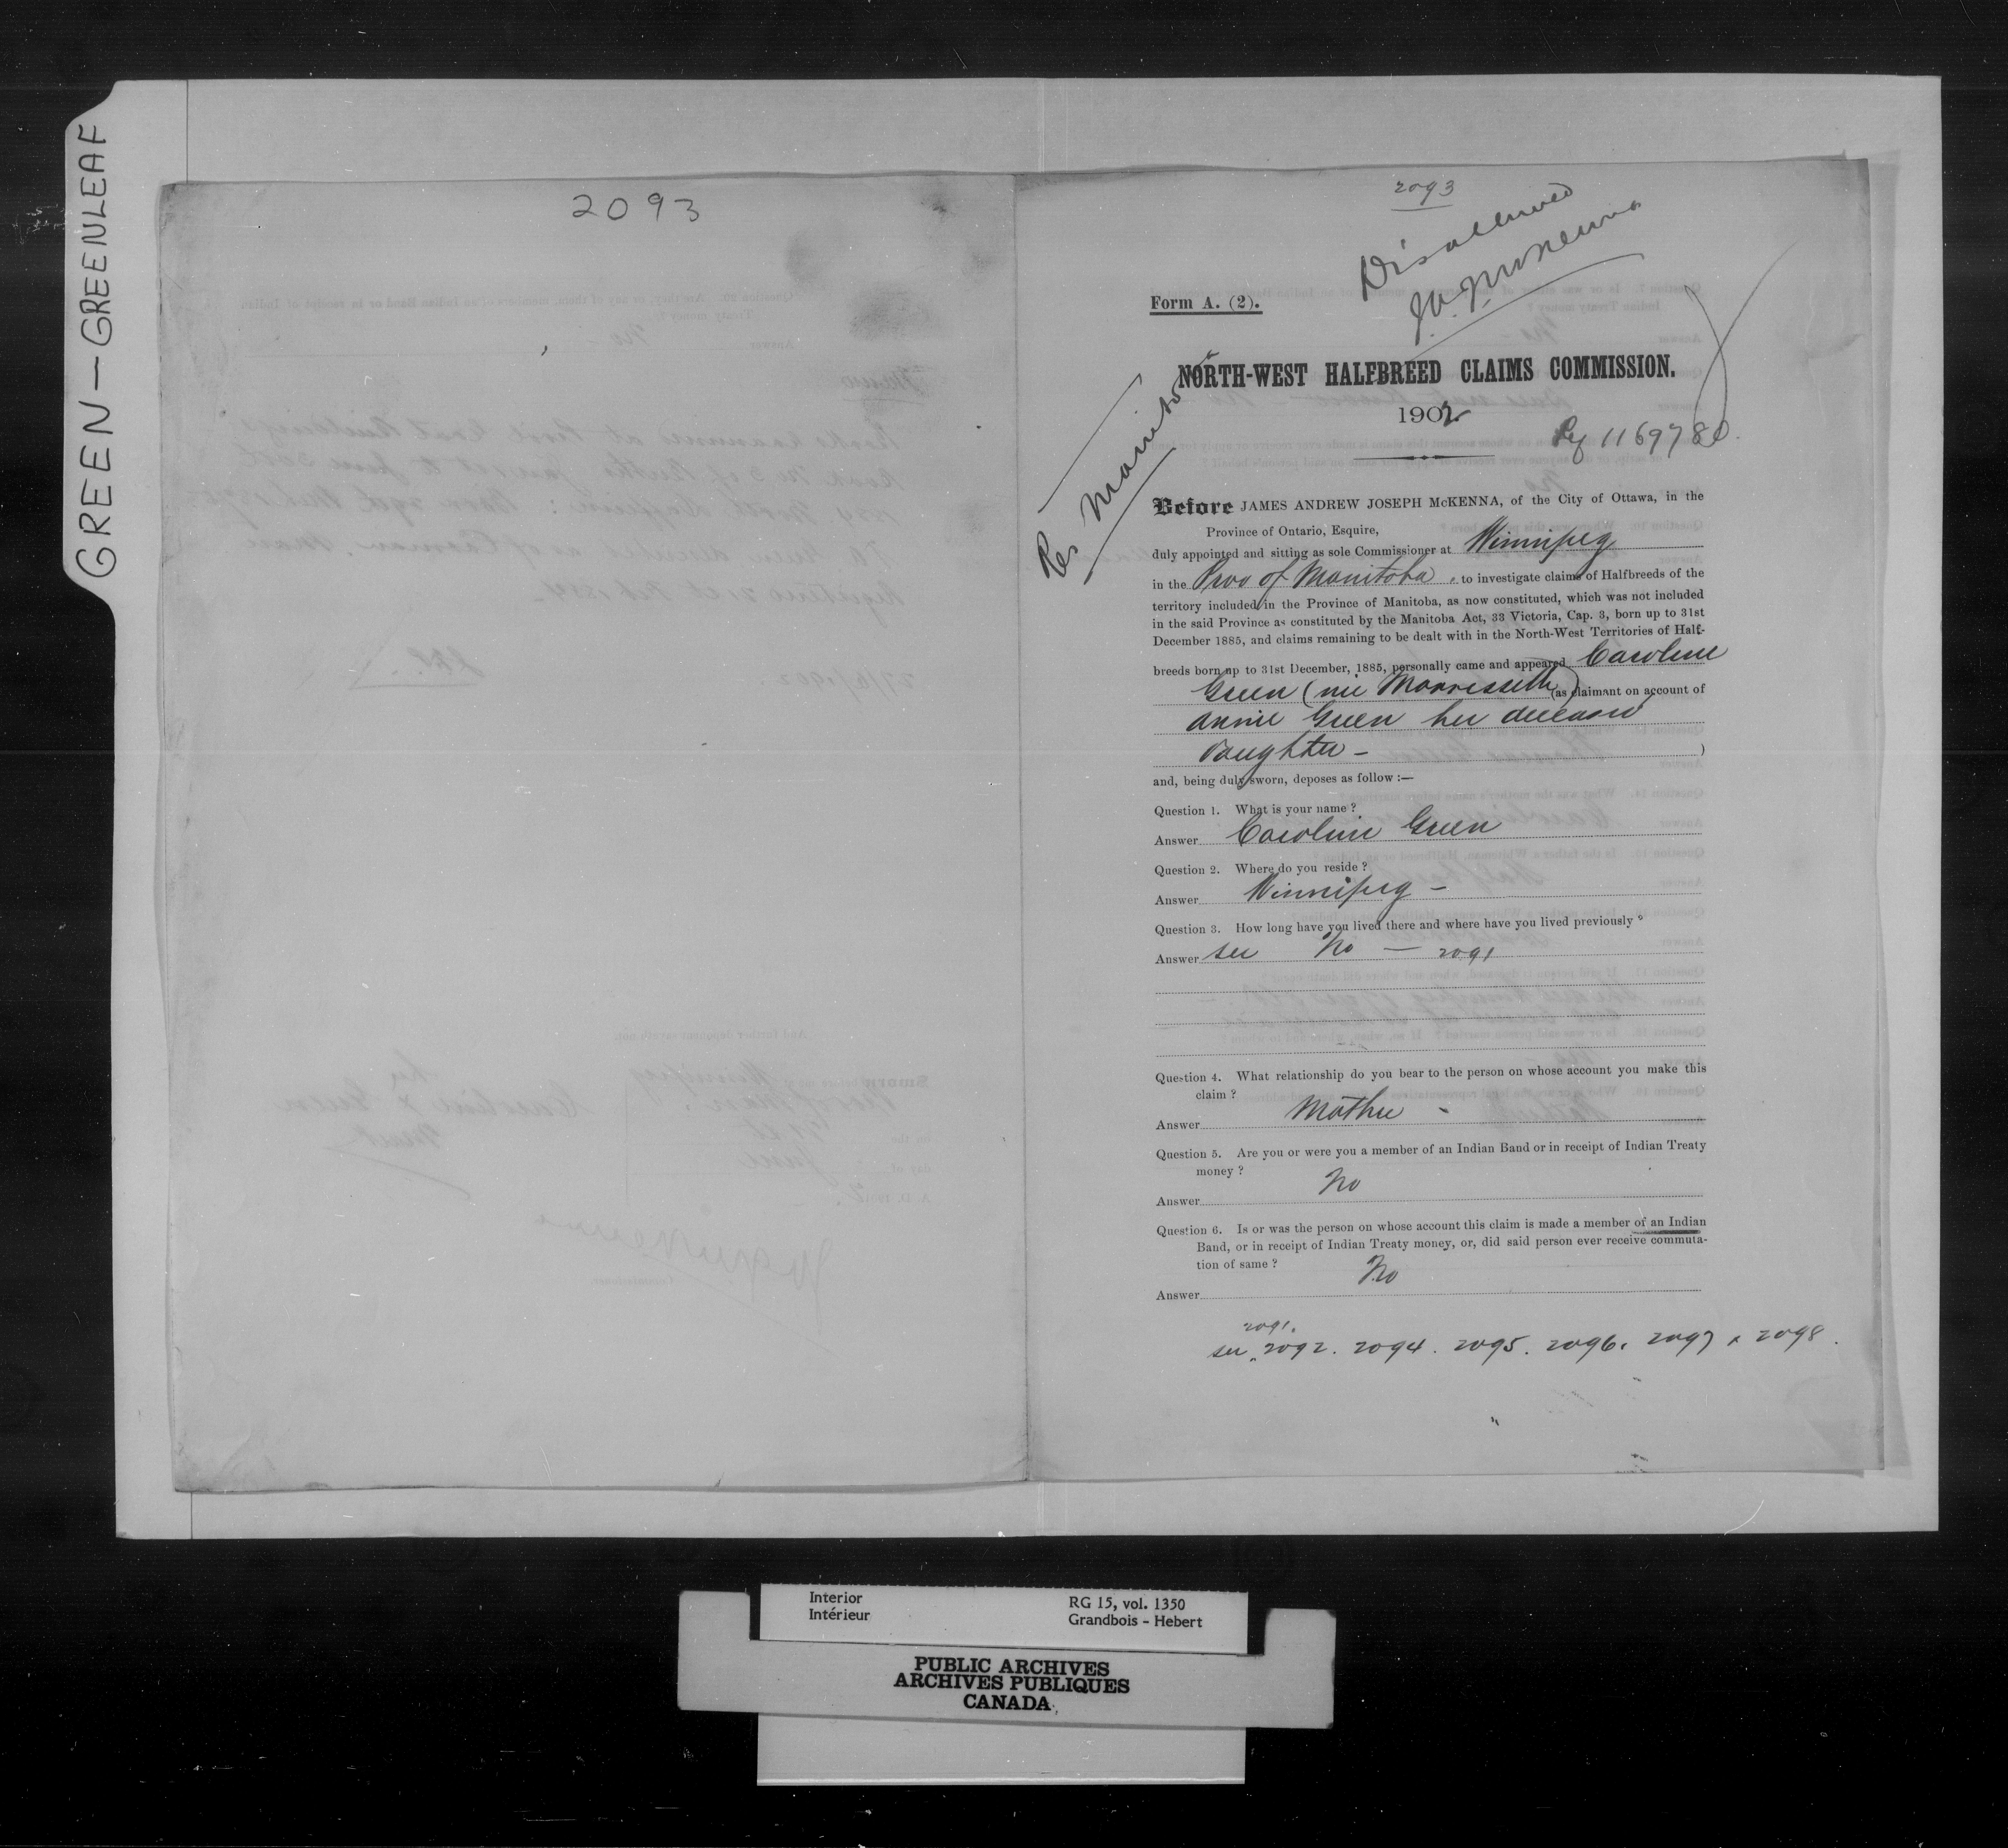 GREEN - GREENLEAF
2093
2093
Disallowed
J.A.J. McKenna
Form A. (2).
NORTH-WEST HALFBREED CLAIMS COMMISSION.
1902
Reg 1169780.
Res Manitoba
Before JAMES ANDREW JOSEPH McKENNA, of the City of Ottawa, in the
Province of Ontario, Esquire,
duly appointed and sitting as sole Commissioner at Winnipeg
in the Prov of Manitoba, to investigate claims of Halfbreeds of the
territory included in the Province of Manitoba, as now constituted, which was not included
in the said Province as constituted by the Manitoba Act, 33 Victoria, Cap. 3, born up to 31st
December 1885, and claims remaining to be dealt with in the North-West Territories of Half-
breeds born up to 31st December, 1885, personally came and appeared Caroline
Green (née Morrissette) (as claimant on account of
Annie Green her deceased
daughter - )
and, being duly sworn, deposes as follow :—
Question 1. What is your name ?
Answer Caroline Green
Question 2. Where do you reside ?
Answer Winnipeg -
Question 3. How long have you lived there and where have you lived previously ?
Answer see No — 2091
Question 4. What relationship do you bear to the person on whose account you make this
claim ?
Answer Mother -
Question 5. Are you or were you a member of an Indian Band or in receipt of Indian Treaty
money ?
Answer No
Question 6. Is or was the person on whose account this claim is made a member of an Indian
Band, or in receipt of Indian Treaty money, or, did said person ever receive commuta-
tion of same ?
Answer No
2091.
see 2092. 2094. 2095. 2096. 2097 & 2098.
Interior
Intérieur
RG 15, vol. 1350
Grandbois - Hebert
PUBLIC ARCHIVES
ARCHIVES PUBLIQUES
CANADA